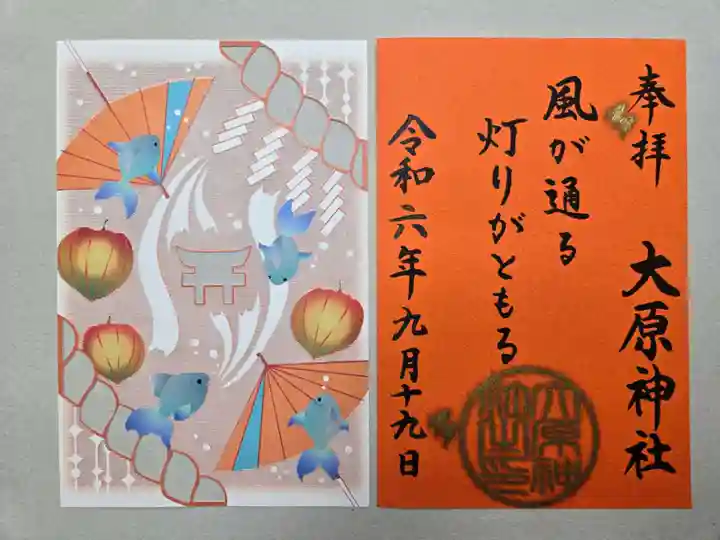 奉拝　大原神社
風が通る
灯りがともる
令和六年九月十九日